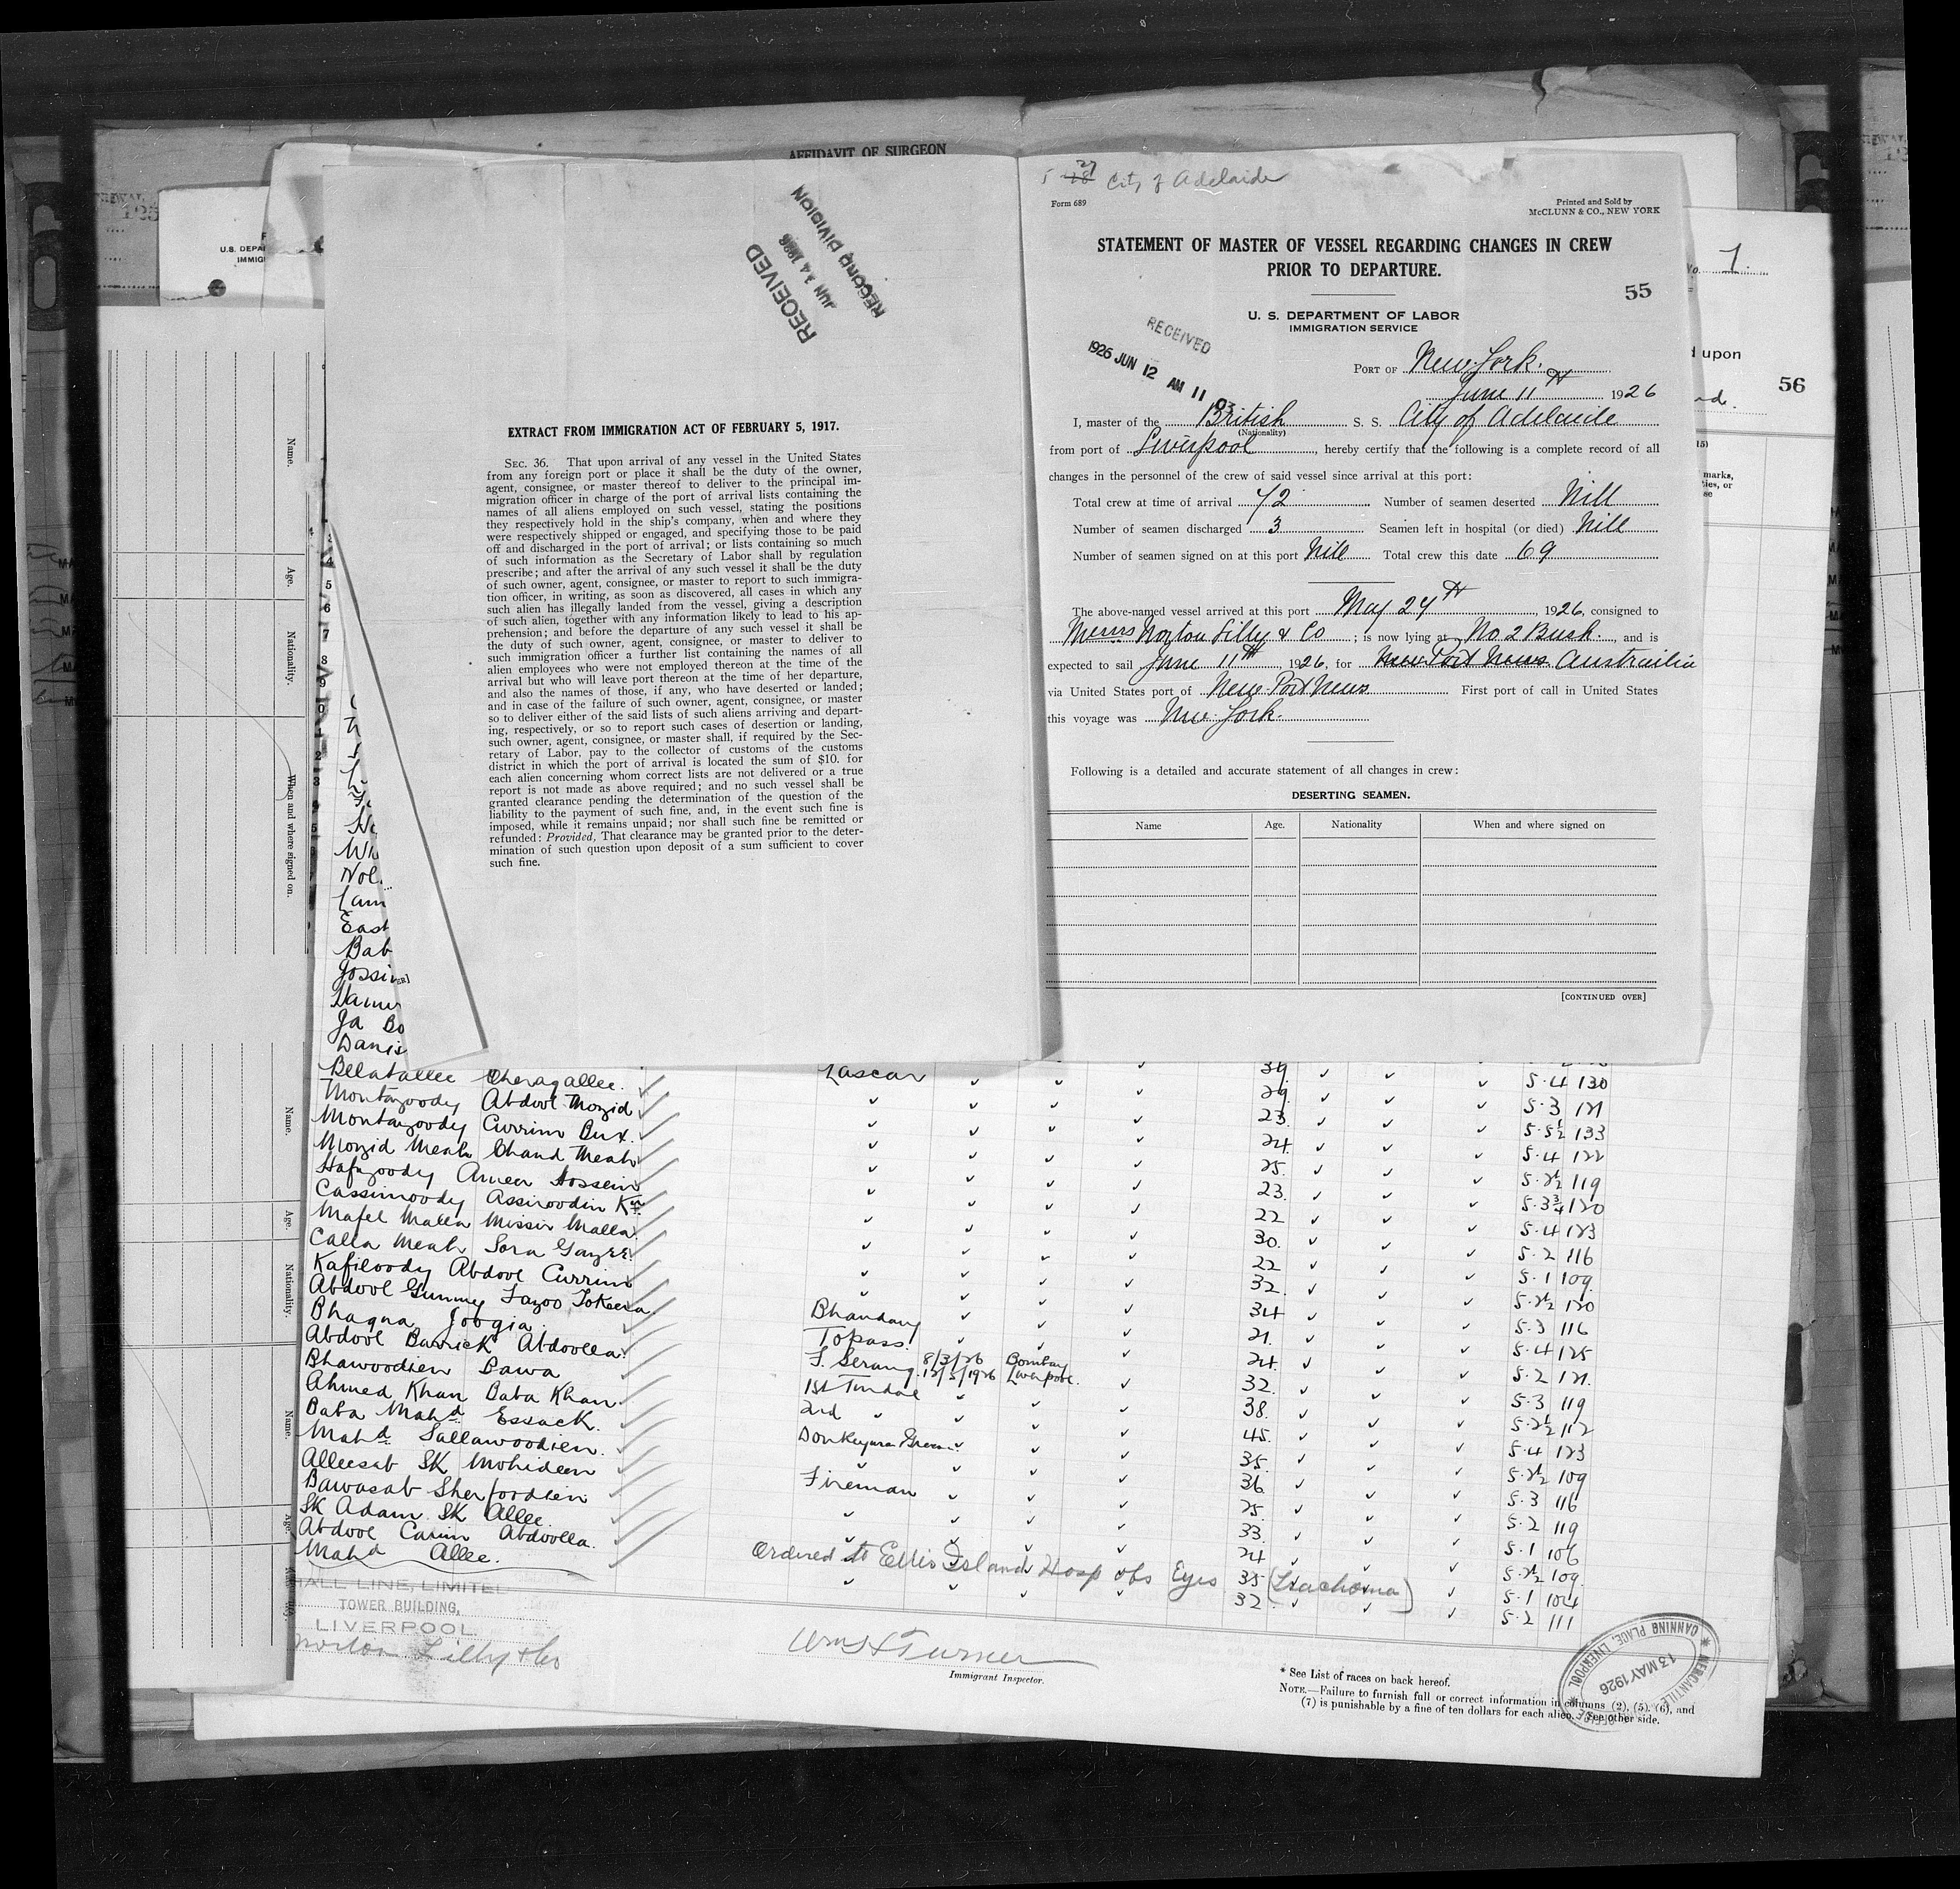 AFFIDAVIT OF SURGEON
RECEIVED
JUN 14 1926
RECORD DIVISION
EXTRACT FROM IMMIGRATION ACT OF FEBRUARY 5, 1917.
SEC. 36. That upon arrival of any vessel in the United States
from any foreign port or place it shall be the duty of the owner,
agent, consignee, or master thereof to deliver to the principal im-
migration officer in charge of the port of arrival lists containing the
names of all aliens employed on such vessel, stating the positions
they respectively hold in the ship's company, when and where they
were respectively shipped or engaged, and specifying those to be paid
off and discharged in the port of arrival; or lists containing so much
of such information as the Secretary of Labor shall by regulation
prescribe; and after the arrival of any such vessel it shall be the duty
of such owner, agent, consignee, or master to report to such immigra-
tion officer, in writing, as soon as discovered, all cases in which any
such alien has illegally landed from the vessel, giving a description
of such alien, together with any information likely to lead to his ap-
prehension; and before the departure of any such vessel it shall be
the duty of such owner, agent, consignee, or master to deliver to
such immigration officer a further list containing the names of all
alien employees who were not employed thereon at the time of the
arrival but who will leave port thereon at the time of her departure,
and also the names of those, if any, who have deserted or landed;
and in case of the failure of such owner, agent, consignee, or master
so to deliver either of the said lists of such aliens arriving and depart-
ing, respectively, or so to report such cases of desertion or landing,
such owner, agent, consignee, or master shall, if required by the Sec-
retary of Labor, pay to the collector of customs of the customs
district in which the port of arrival is located the sum of $10. for
each alien concerning whom correct lists are not delivered or a true
report is not made as above required; and no such vessel shall be
granted clearance pending the determination of the question of the
liability to the payment of such fine, and, in the event such fine is
imposed, while it remains unpaid; nor shall such fine be remitted or
refunded: Provided, That clearance may be granted prior to the deter-
mination of such question upon deposit of a sum sufficient to cover
such fine.
City of Adelaide
Form 689
Printed and Sold by
McCLUNN & CO., NEW YORK
STATEMENT OF MASTER OF VESSEL REGARDING CHANGES IN CREW
PRIOR TO DEPARTURE.
55
U. S. DEPARTMENT OF LABOR
IMMIGRATION SERVICE
RECEIVED
1926 JUN 12 AM 11 03
PORT OF New York.
June 11th 1926
I, master of the British S. S. City of Adelaide
(Nationality)
from port of Liverpool, hereby certify that the following is a complete record of all
changes in the personnel of the crew of said vessel since arrival at this port:
Total crew at time of arrival 72 Number of seamen deserted Nill
Number of seamen discharged 3 Seamen left in hospital (or died) Nill
Number of seamen signed on at this port Nill Total crew this date 69
The above-named vessel arrived at this port May 24th, 1926, consigned to
Messrs Norton Lilly & Co; is now lying at No. 2 Bush., and is
expected to sail June 11th, 1926, for New Port News Austrailia
via United States port of New Port News First port of call in United States
this voyage was New York.
Following is a detailed and accurate statement of all changes in crew:
DESERTING SEAMEN.
Name Age. Nationality When and where signed on
[CONTINUED OVER]
No. 1.
upon
56
Name.
Age.
Nationality.
When and where signed on.
Bellatallee Cheragallee. Lascar 39 5.4 130
Montazoody Abdool Mozid 29. 5.3 121
Montazoody Currim Bux. 23. 5.5½ 133
Mozid Meah Chand Meah 24. 5.4 122
Hafizoody Ameer Hossein 25. 5.2½ 119
Cassimoody Assiroodin Kn 23. 5.3¾ 120
Mafel Malla Missir Malla. 22 5.4 123
Calla Meah Sora Gazee 30. 5.2 116
Kafiloody Abdool Currim 22 5.1 109
Abdool Gunney Fazoo Tokeera. 32. 5.2½ 120
Bhagna Joogia. Bhandary 34 5.3 116
Abdool Barrick Abdoolla. Topass. 21. 5.4 125
Bhawoodien Bawa F. Serang. 8/3/26 Bombay 12/5/1926 Liverpool. 24. 5.2 121.
Ahmed Khan Baba Khan. 1st Tindal 32. 5.3 119
Baba Mahd Essack. 2nd 38. 5.2½ 112
Mahd Sallawoodien. Donkeyman Greaser. 45. 5.4 123
Alleesab SK Mohideen 35. 5.2½ 109
Bawasab Sherfoodien Fireman 36. 5.3 116
SK Adam SK Allee. 25. 5.2 119
Abdool Carim Abdoolla. 33. 5.1 106
Mahd Allee. 24 5.2½ 109.
Ordered to Ellis Island Hosp obs Eyes (Trachoma) 35 5.1 104
32. 5.2 111
HALL LINE, LIMITED
TOWER BUILDING,
LIVERPOOL.
Norton Lilly & Co
Wm H Turner
Immigrant Inspector.
* See List of races on back hereof.
NOTE.—Failure to furnish full or correct information in columns (2), (5), (6), and
(7) is punishable by a fine of ten dollars for each alien. See other side.
MERCANTILE OFFICE
13 MAY 1926
CANNING PLACE, LIVERPOOL